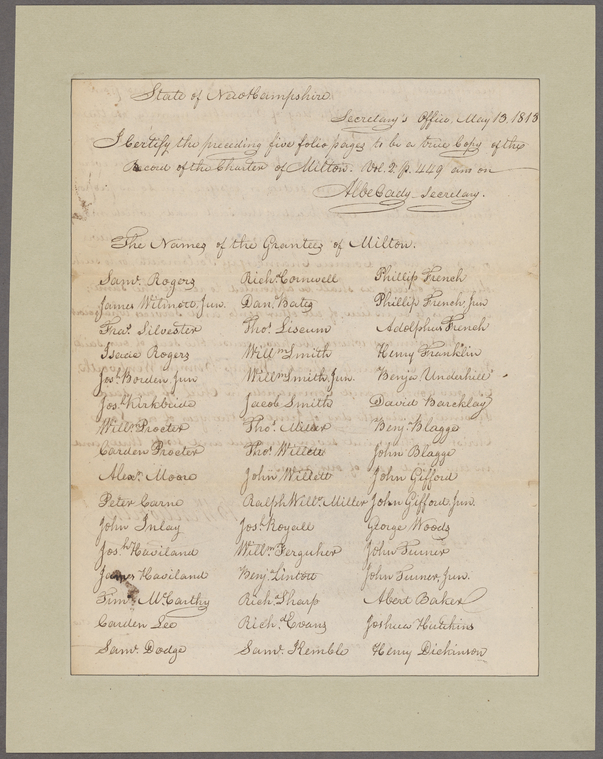 State of New Hampshire
Secretary's Office, May 13, 1813
I Certify the preceding five folio pages to be a true Copy of the
Record of the Charter of Milton. Vol. 2. p. 449 and on
Albe Cady Secretary.
The Names of the Grantees of Milton.
Saml. Rogers Richd. Cornwell Phillip French
James Wilmott, Jun. Danl. Bates Phillip French, Jun
Thos. Silvester Thos. Liscum Adolphus French
Isaac Rogers Willm Smith Henry Franklin
Jos. Borden, Jun Willm Smith, Jun. Benja Underhill
Jos. Kirkbride Jacob Smith David Barcklay
Willm Procter Thos. Miller Benj. Blagge
Carden Procter Thos. Willett John Blagge
Alexr. Moore John Willett John Gifford
Peter Carne Ralph Willm. Miller John Gifford Jun.
John Inlay Jos. Royall George Woods
Josh Haviland Willm Ferguher John Turner
James Haviland Benj. Lintott John Turner, Jun.
Timy McCarthy Richd Sharp Albert Baker
Carden Lee Richd Evans Joshua Hutchins
Saml. Dodge Saml. Kemble Henry Dickinson